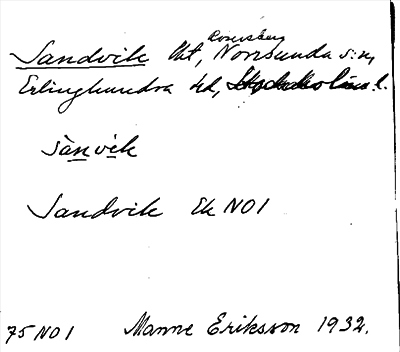 Rosersberg
Sandvik tht, Norrsunda sn,
Erlinghundra hd, Stockholms l.
sànvìk
Sandvik Ek NO1
75 NO1 Manne Eriksson 1932.